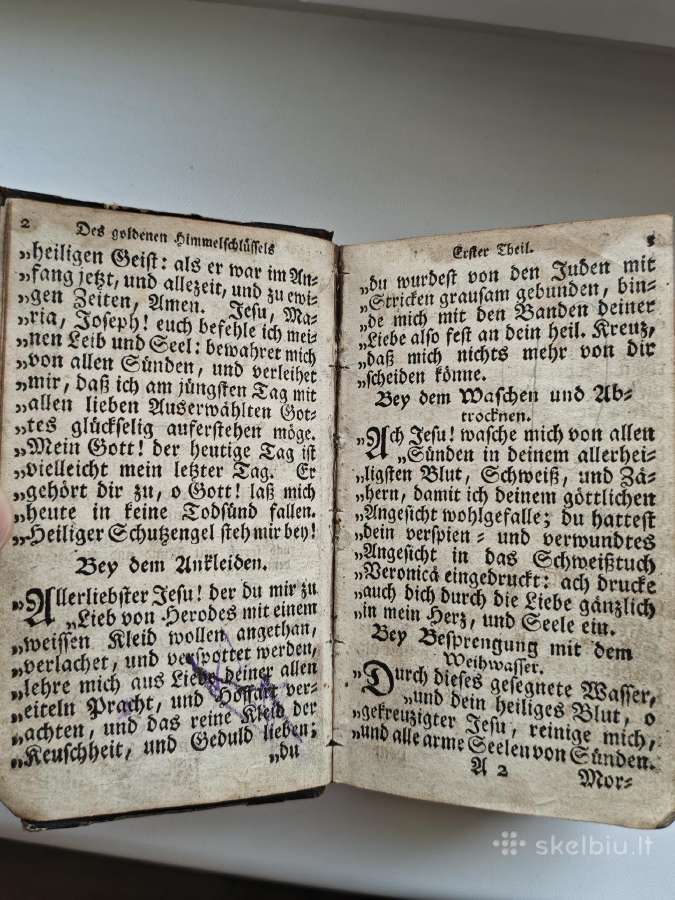 2 Des goldenen Himmelschlüssels
„heiligen Geist: als er war im An-
„fang jetzt, und allezeit, und zu ewi-
„gen Zeiten, Amen. Jesu, Ma-
„ria, Joseph! euch befehle ich mei-
„nen Leib und Seel: bewahret mich
„von allen Sünden, und verleihet
„mir, daß ich am jüngsten Tag mit
„allen lieben Auserwählten Got-
„tes glückselig auferstehen möge.
„Mein Gott! der heutige Tag ist
„vielleicht mein letzter Tag. Er
„gehört dir zu, o Gott! laß mich
„heute in keine Todsünd fallen.
„Heiliger Schutzengel steh mir bey!
Bey dem Ankleiden.
„Allerliebster Jesu! der du mir zu
„Lieb von Herodes mit einem
„weissen Kleid wollen angethan,
„verlachet, und verspottet werden,
„lehre mich aus Liebe deiner allen
„eiteln Pracht, und Hoffart ver-
„achten, und das reine Kleid der
„Keuschheit, und Geduld lieben;
„du
Erster Theil. 3
„du wurdest von den Juden mit
„Stricken grausam gebunden, bin-
„de mich mit den Banden deiner
„Liebe also fest an dein heil. Kreuz,
„daß mich nichts mehr von dir
„scheiden könne.
Bey dem Waschen und Ab-
trocknen.
„Ach Jesu! wasche mich von allen
„Sünden in deinem allerhei-
„ligsten Blut, Schweiß, und Zä-
„hern, damit ich deinem göttlichen
„Angesicht wohlgefalle; du hattest
„dein verspien- und verwundtes
„Angesicht in das Schweißtuch
„Veronicä eingedruckt: ach drucke
„auch dich durch die Liebe gänzlich
„in mein Herz, und Seele ein.
Bey Besprengung mit dem
Weihwasser.
„Durch dieses gesegnete Wasser,
„und dein heiliges Blut, o
„gekreuzigter Jesu, reinige mich,
„und alle arme Seelen von Sünden.
A 2 Mor-
skelbiu.lt